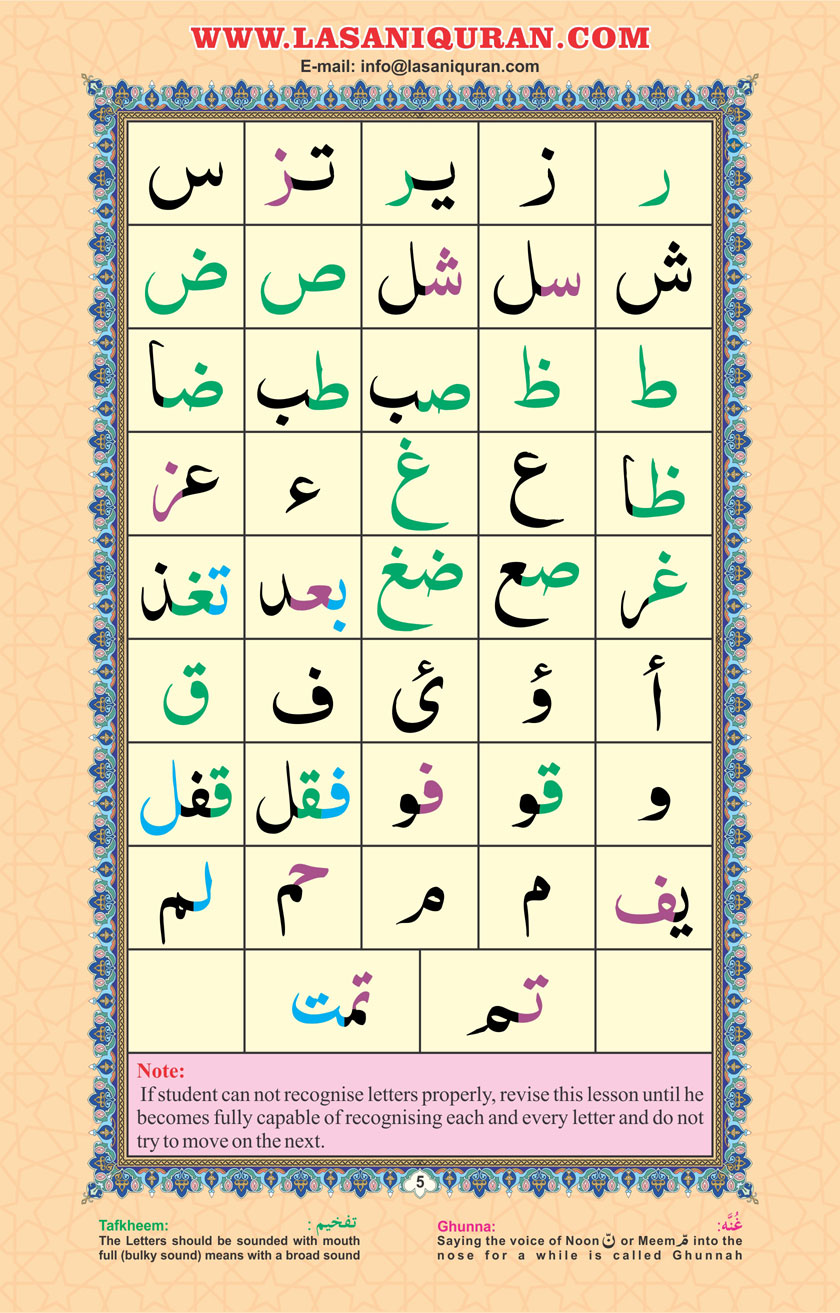 WWW.LASANIQURAN.COM
E-mail: info@lasaniquran.com
ر ز ير تز س
ش سل شل ص ض
ط ظ صب طب ضا
ظا ع غ ء عز
غر صع ضغ بعد تغذ
أ ؤ ئ ف ق
و قو فو فقل قفل
يف م م حم لم
تم تمت
Note:
If student can not recognise letters properly, revise this lesson until he
becomes fully capable of recognising each and every letter and do not
try to move on the next.
5
Tafkheem: تفخيم :
The Letters should be sounded with mouth
full (bulky sound) means with a broad sound
Ghunna: غُنَّه:
Saying the voice of Noon نّ or Meem مّ into the
nose for a while is called Ghunnah